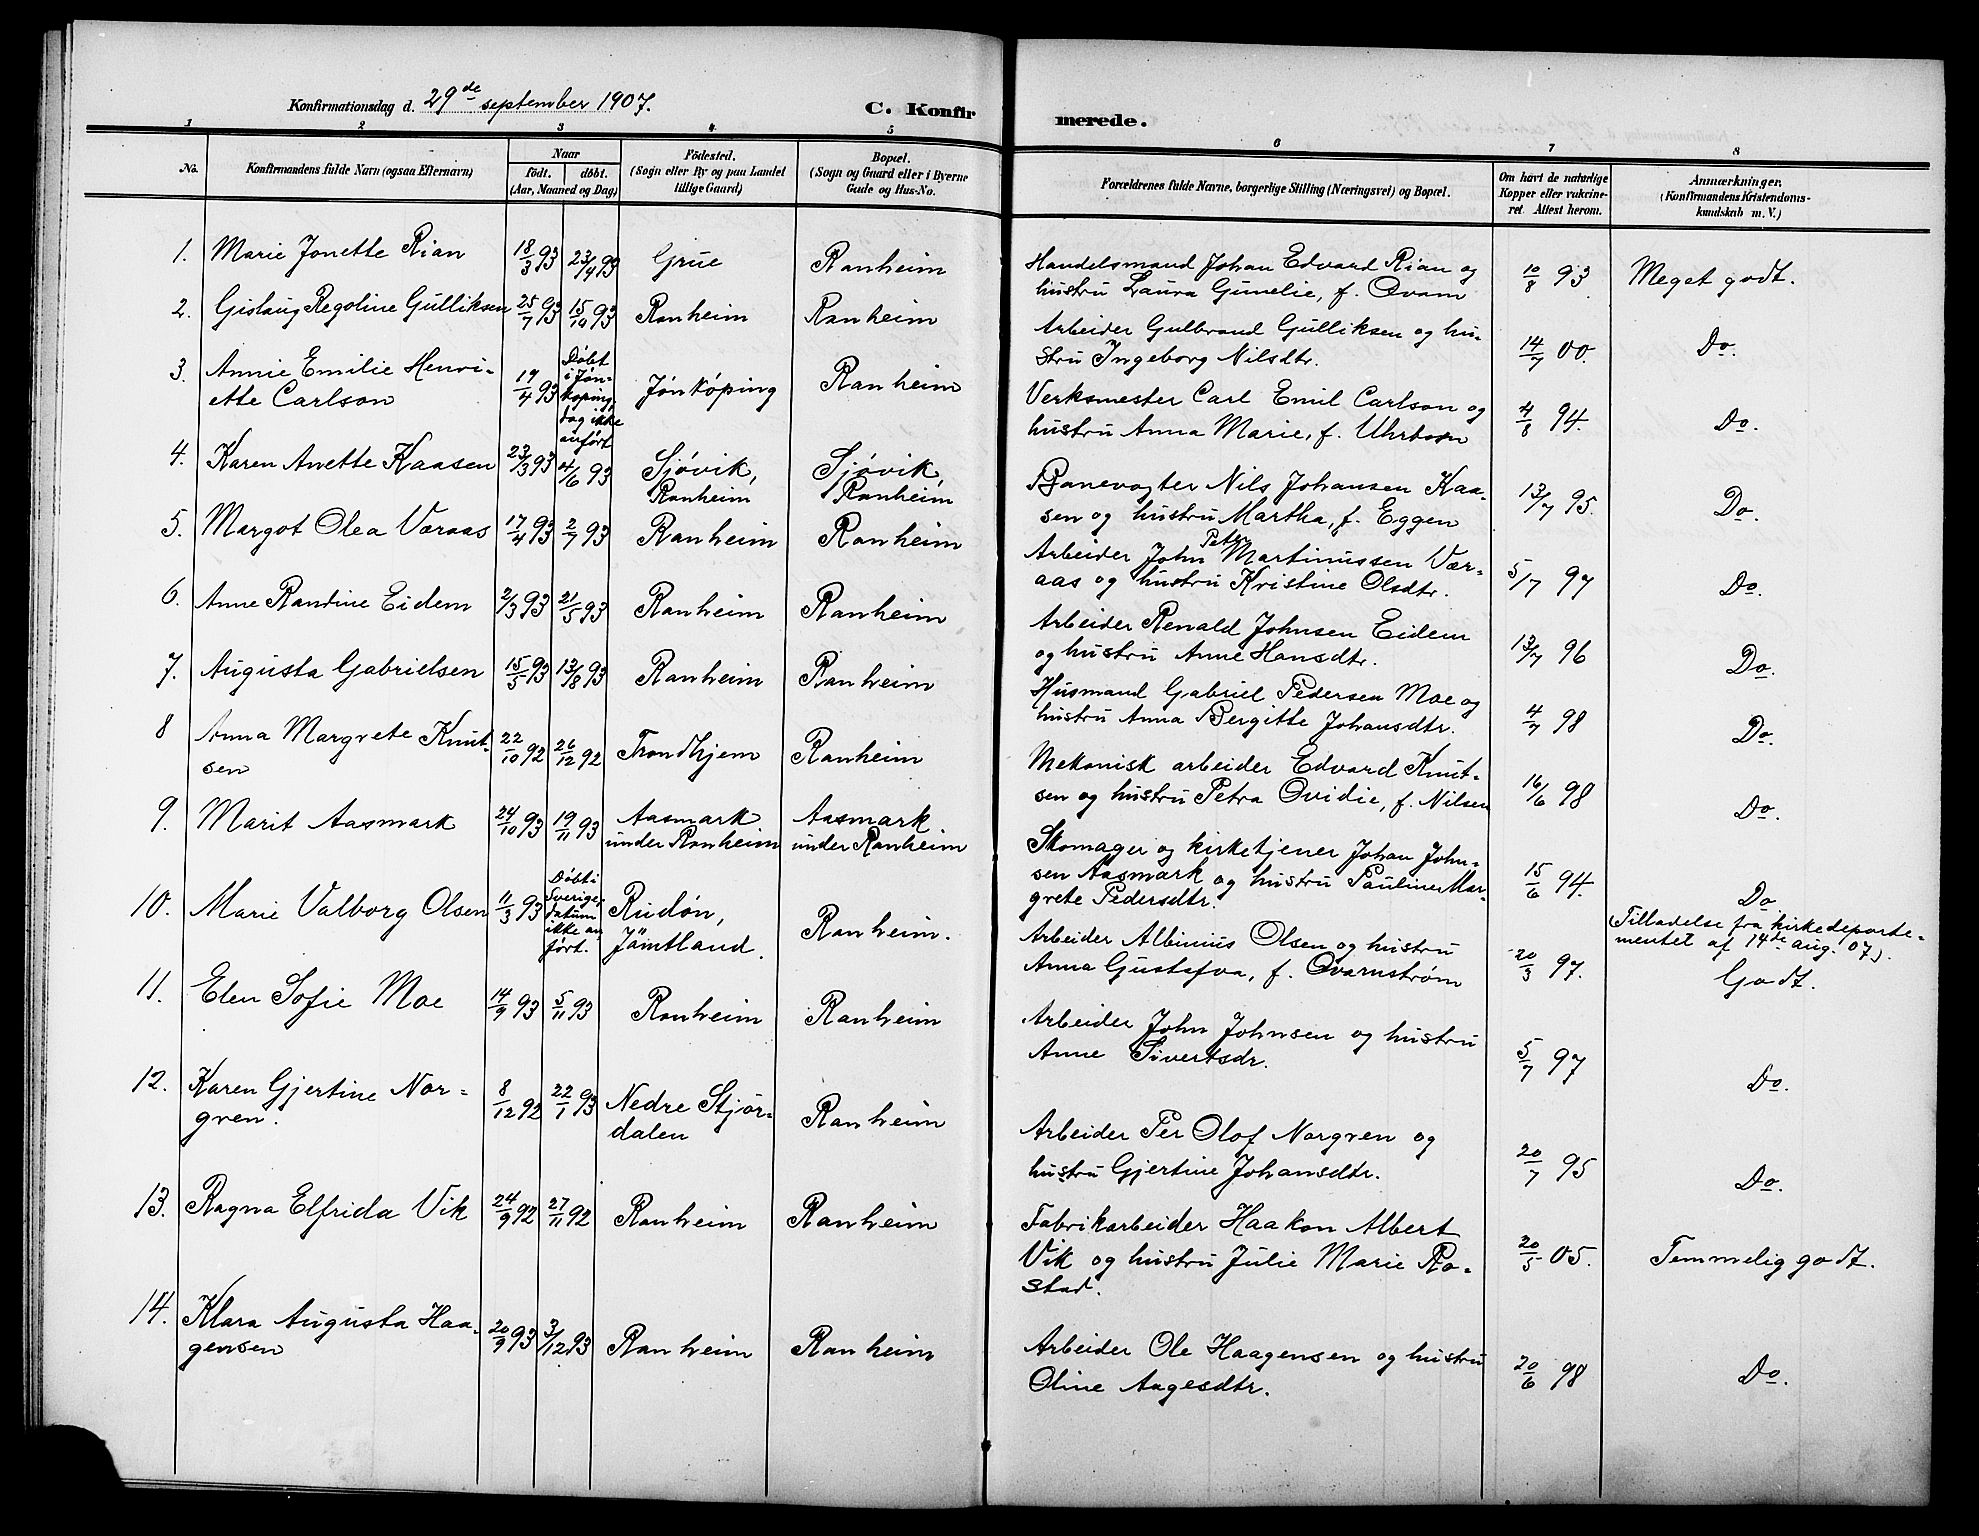 Konfirmationsdag d. 29de september 1907.
C. Konfir
merede.
1 2 3 4 5 6 7 8
No.
Konfirmandens fulde Navn (ogsaa Efternavn)
Naar
födt. döbt.
(Aar, Maaned og Dag)
Födested.
(Sogn eller By og paa Landet
tillige Gaard)
Bopæl.
(Sogn og Gaard eller i Byerne
Gade og Hus-No.
Forældrenes fulde Navne, borgerlige Stilling (Næringsvei) og Bopæl.
Om havt de naturlige
Kopper eller vakcine-
ret. Attest herom.
Anmærkninger.
(Konfirmandens Kristendoms-
kundskab m. V.)
1. Marie Jonette Rian 18/3 93 23/4 93 Grue Ranheim
Handelsmand Johan Edvard Rian og
hustru Laura Gunelie, f. Qvam
10/8 93 Meget godt.
2. Gislaug Regoline Gulliksen 25/7 93 15/10 93 Ranheim Ranheim
Arbeider Gulbrand Gulliksen og hu-
stru Ingeborg Nilsdtr.
14/7 00. Do.
3. Annie Emilie Henri-
ette Carlson
19/4 93
Döbt
i Jön-
köping,
dag ikke
anfört
Jönköping Ranheim
Verksmester Carl Emil Carlson og
hustru Anna Marie, f. Uhrbom
4/8 94. Do.
4. Karen Anette Kaasen 23/3 93 4/6 93 Sjövik, Sjövik,
Ranheim Ranheim
Banevogter Nils Johansen Kaa-
sen og hustru Martha, f. Eggen
13/7 95. Do.
5. Margot Olea Væraas 17/4 93 2/7 93 Ranheim Ranheim
Arbeider John Peter Martinussen Vær-
aas og hustru Kristine Olsdtr.
5/7 97 Do.
6. Anne Randine Eidem 2/3 93 21/5 93 Ranheim Ranheim
Arbeider Renald Johnsen Eidem
og hustru Anne Hansdtr.
13/7 96 Do.
7. Augusta Gabrielsen 15/5 93 13/8 93 Ranheim Ranheim
Husmand Gabriel Pedersen Moe og
hustru Anna Bergitte Johansdtr.
4/7 98 Do.
8 Anna Margrete Knut-
sen
22/10 92 26/12 92 Trondhjem Ranheim
Mekanisk arbeider Edvard Knut-
sen og hustru Petra Ovidie, f. Nilsen
16/6 98 Do.
9. Marit Aasmark 24/10 93 19/11 93 Aasmark Aasmark
under Ranheim under Ranheim
Skomager og kirketjener Johan John-
sen Aasmark og hustru Pauline Mar-
grete Pedersdtr.
15/6 94. Do.
10. Marie Valborg Olsen 11/3 93
Döbt i
Sverige,
datum
ikke an
fört.
Rüdön,
Jämtland.
Ranheim.
Arbeider Albinius Olsen og hustru
Anna Gustafva, f. Qvarnström
20/3 97.
(Tilladelse fra kirkedeparte-
mentet af 14de aug. 07).
Godt.
11. Elen Sofie Moe 14/9 93 5/11 93 Ranheim Ranheim
Arbeider John Johnsen og hustru
Anne Sivertsdr.
5/7 97 Do.
12. Karen Gjertine Nor-
gren.
8/12 92 22/1 93 Nedre Stjör-
dalen
Ranheim
Arbeider Per Olof Norgren og
hustru Gjertine Johansdtr.
20/7 95 Do.
13. Ragna Elfrida Vik 24/9 92 27/11 92 Ranheim Ranheim
Fabrikarbeider Haakon Albert
Vik og hustru Julie Marie Ro-
stad.
20/5 05. Temmelig godt.
14. Klara Augusta Haa-
gensen
20/9 93 3/12 93 Ranheim Ranheim
Arbeider Ole Haagensen og hustru
Oline Aagesdtr.
20/6 98 Do.